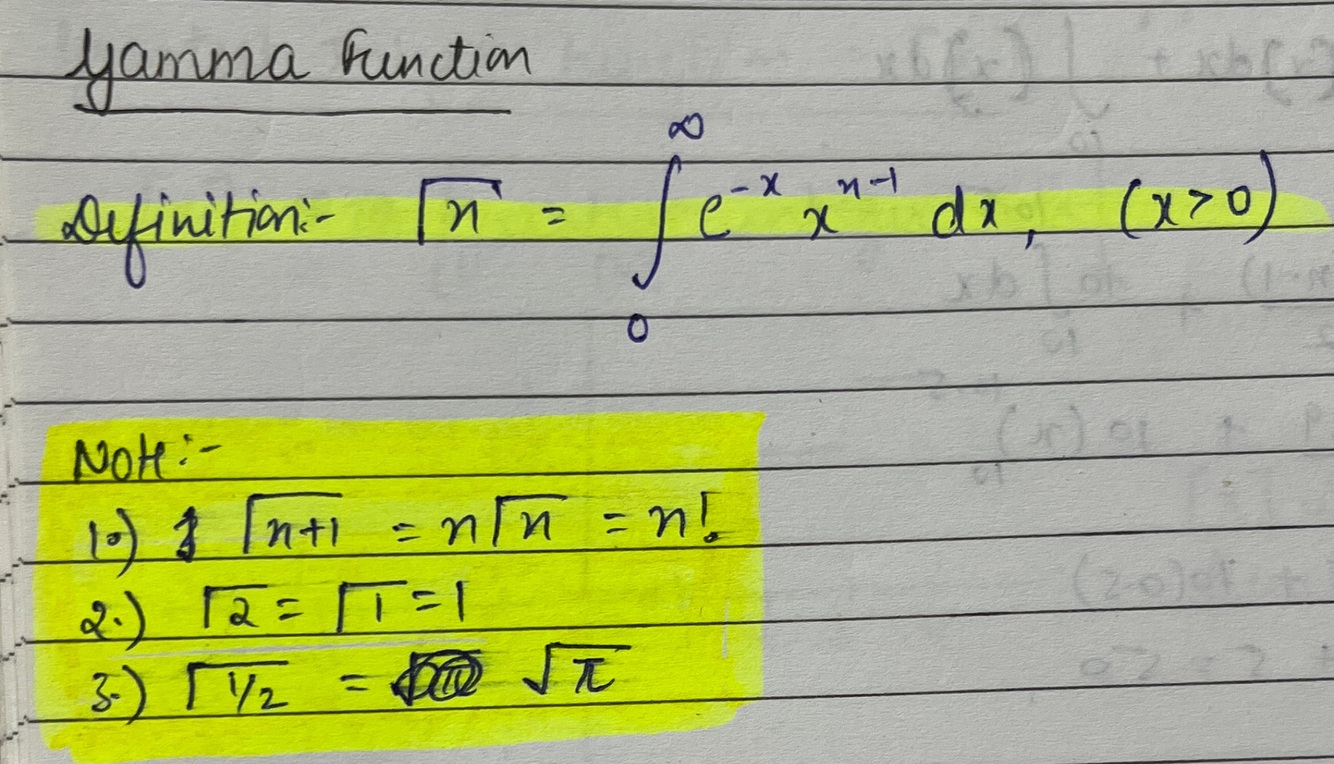 Gamma Function
Definition:- Γn = ∫₀^∞ e^-x x^n-1 dx, (x>0)
Note:-
1.) Γn+1 = nΓn = n!
2.) Γ2 = Γ1 = 1
3.) Γ1/2 = √π